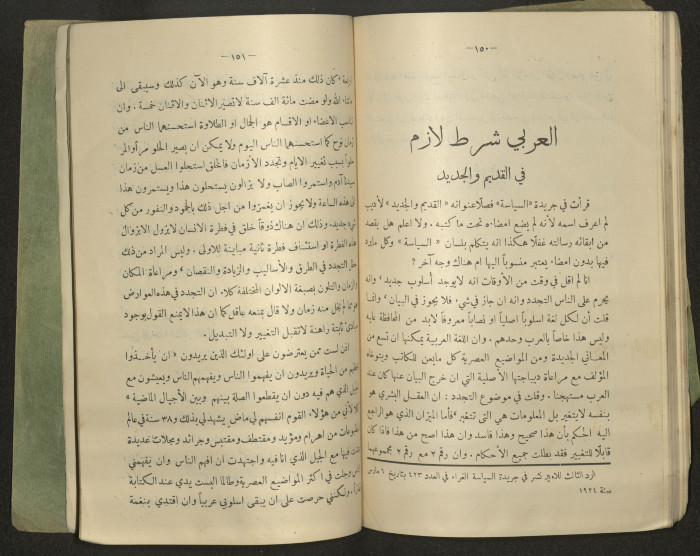 — ١٥٠ —
العربي شرط لازم
في القديم والجديد
قرأت في جريدة «السياسة» فصلاً عنوانه «القديم والجديد» لأديب
لم اعرف اسمه لأنه لم يضع امضاءه تحت ما كتبه . ولا اعلم هل يقصد
من ابقائه رسالته غفلاً هكذا انه يتكلم بلسان «السياسة» وكل مادة
فيها بدون امضاء يعتبر منسوباً اليها ام هناك وجه آخر ؟
انا لم اقل في وقت من الأوقات انه لا يوجد أسلوب جديد وانه
يحرم على الناس التجدد وانه ان جاز في شيء فلا يجوز في البيان وانما
قلت أن لكل لغة اسلوباً اصلياً او نصاباً معروفاً لا بد من المحافظة عليه
وليس هذا خاصاً بالعرب وحدهم . وان اللغة العربية يمكنها ان تسع من
المعاني الجديدة ومن المواضيع العصرية كل ما يعن للكاتب ويتوخاه
المؤلف مع مراعاة ديباجتها الأصلية التي ان خرج البيان عنها كان عند
العرب مستهجناً . وقلت في موضوع التجدد : ان العقل البشري هو
بنفسه لا يتغير بل المعلومات هي التى تتغير فأما الميزان الذي هو الراجع
اليه الحكم بأن هذا صحيح وهذا فاسد وان هذا اصح من هذا فاذا كان
قابلاً للتغيير فقد بطلت جميع الأحكام . وان رقم ٢ مع رقم ٢ مجموعهما
الرد الثالث للامير نشر في جريدة السياسة الغراء في العدد ٤٢٣ بتاريخ ٦ مارس
سنة ١٩٢٤
— ١٥١ —
اربعة كان ذلك منذ عشرة آلاف سنة وهو الآن كذلك وسيبقى الى
ما شاء الله ولو مضت مائة الف سنة لا تصير الاثنان والاثنان خمسة . وان
تناسب الاعضاء او الاقسام هو الجمال او الطلاوة استحسنها الناس من
زمان نوح كما استحسنها الناس اليوم ولا يمكن ان يصير الحلو مراً والمر
حلواً بسبب تغيير الايام وتجدد الأزمان فالخلق استحلوا العسل من زمان
سيدنا آدم واستمروا الصاب ولا يزالون يستحلون هذا ويستمرون هذا
الى هذه الساعة ولا يجوز ان يغمزوا من اجل ذلك بالجمود والنفور من كل
شيء جديد . وذلك ان هناك ذوقاً خلق في فطرة الانسان لا يزول الا بزوال
هذه الفطرة او استئناف فطرة ثانية مباينة للاولى . وليس المراد من ذلك
حظر التجدد في الطرق والأساليب والزيادة والنقصان ومراعاة المكان
والزمان والتلون بصبغة الالوان المختلفة كلا. ان التجدد في هذه العوارض
هو مما لم يخل منه زمان ولا قال بمنعه عاقل كما ان هذا لا يمنع القول بوجود
مبادئ ثابتة راهنة لا تقبل التغيير ولا التبديل .
اذن لست ممن يعترضون على اولئك الذين يريدون « ان يأخذوا
من الحياة ويريدون ان يفهموا الناس ويفهمهم الناس ويعيشون مع
الجيل الذي هم فيه دون ان يقطعوا الصلة بينهم وبين الأجيال الماضية »
لأني من هؤلاء القوم انفسهم لي ماض يشهد لي بذلك و ٣٨ سنة في عالم
المطبوعات من اهرام ومؤيد ومقتطف ومقتبس وجرائد ومجلات عديدة
فيها مع الجيل الذي انا فيه واجتهدت ان افهم الناس وان يفهمني
الناس وجلت في اكثر المواضيع العصرية وطالما البست يدي عند الكتابة
ولكنني حرصت على ان يبقى اسلوبي عربياً وان اقتدي بنغمة